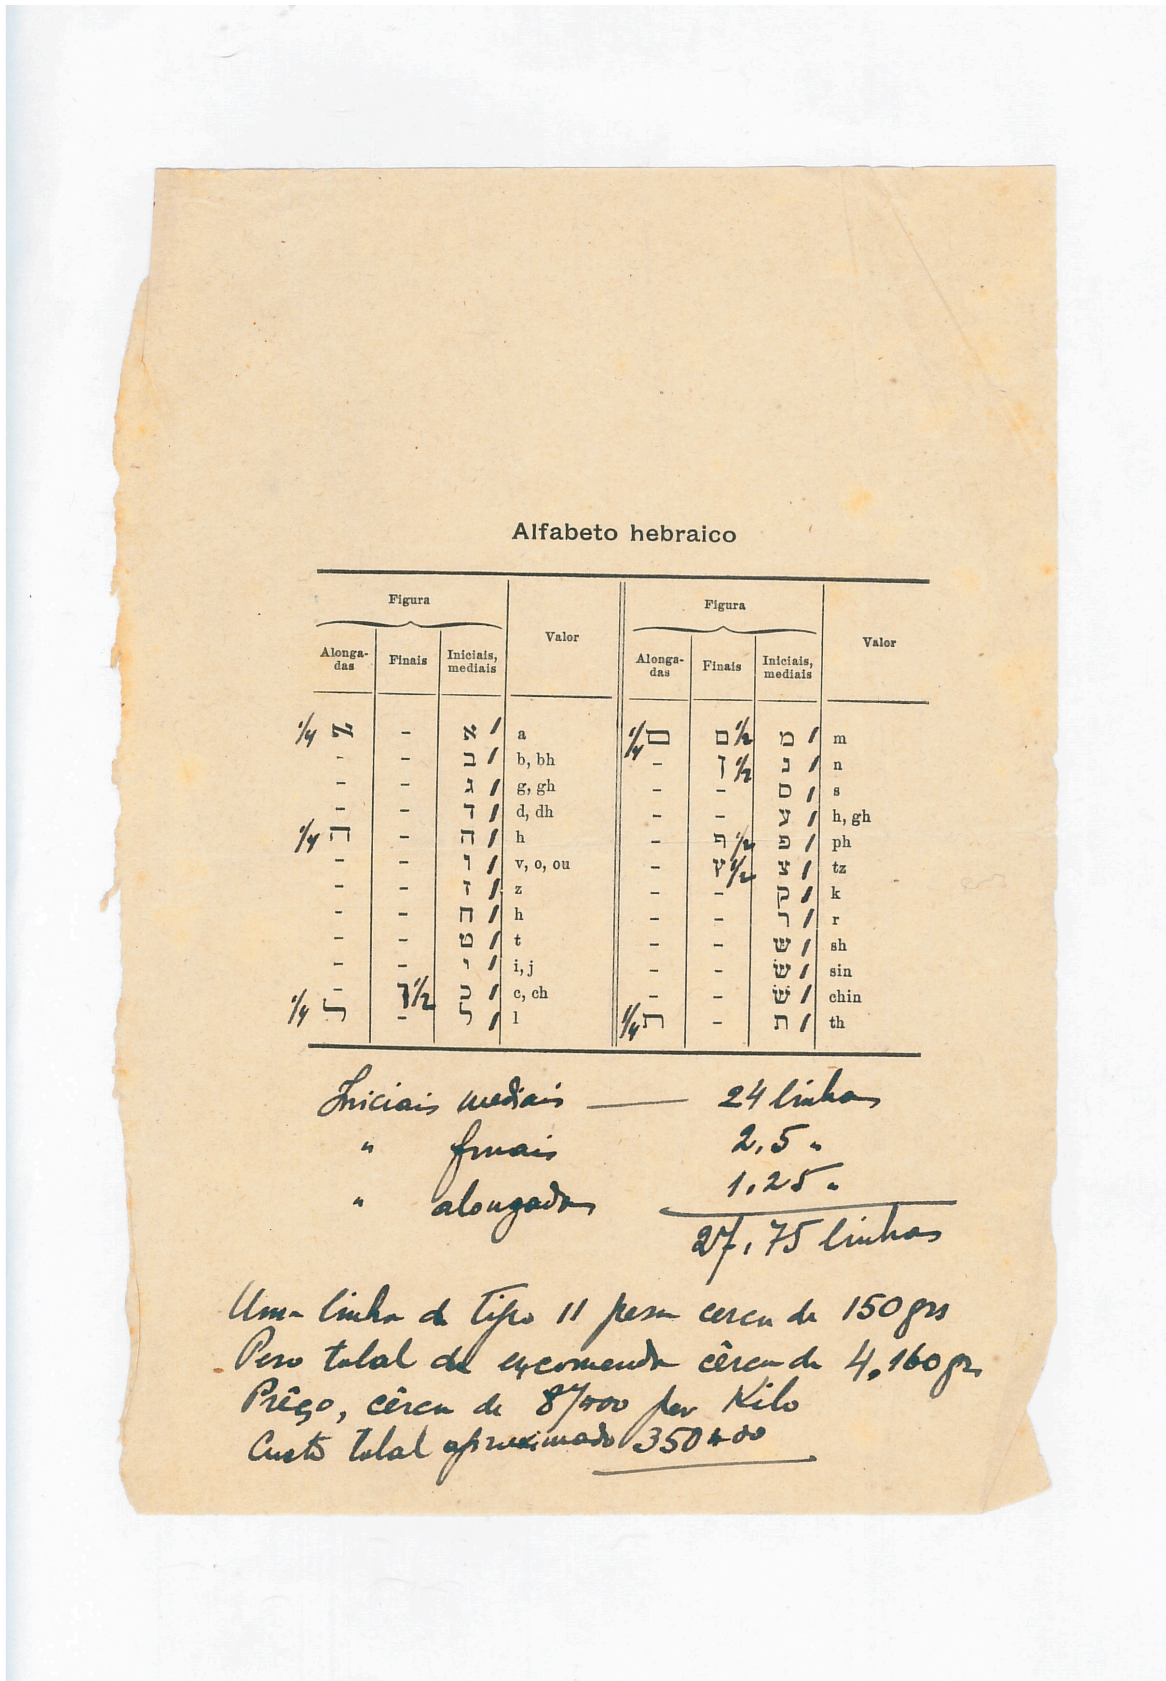 Alfabeto hebraico
Figura Valor Figura Valor
Alonga-das Finais Iniciais, mediais Alonga-das Finais Iniciais, mediais
1/4 א - א 1 a 1/4 ם ם 1/2 מ 1 m
- - ב 1 b, bh - ן 1/2 נ 1 n
- - ג 1 g, gh - - ס 1 s
- - ד 1 d, dh - - ע 1 h, gh
1/4 ה - ה 1 h - ף 1/2 פ 1 ph
- - ו 1 v, o, ou - ץ 1/2 צ 1 tz
- - ז 1 z - - ק 1 k
- - ח 1 h - - ר 1 r
- - ט 1 t - - ש 1 sh
- - י 1 i, j - - שׂ 1 sin
- ך 1/2 כ 1 c, ch - - שׁ 1 chin
1/4 ל - ל 1 l 1/4 ת - ת 1 th
Iniciais mediais — 24 linhas
" finais 2,5 "
" alongadas 1,25 "
27,75 linhas
Uma linha de tipo 11 pesa cerca de 150 grs
Peso total da encomenda cêrca de 4,160 grs
Prêço, cêrca de por Kilo
Custo total aproximado 350$00